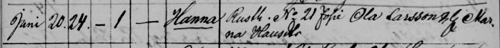 Juni 20. 24. – 1 – Hanna Rusth. No 21 Josu Ola Larsson & Mar-
na Hansdr